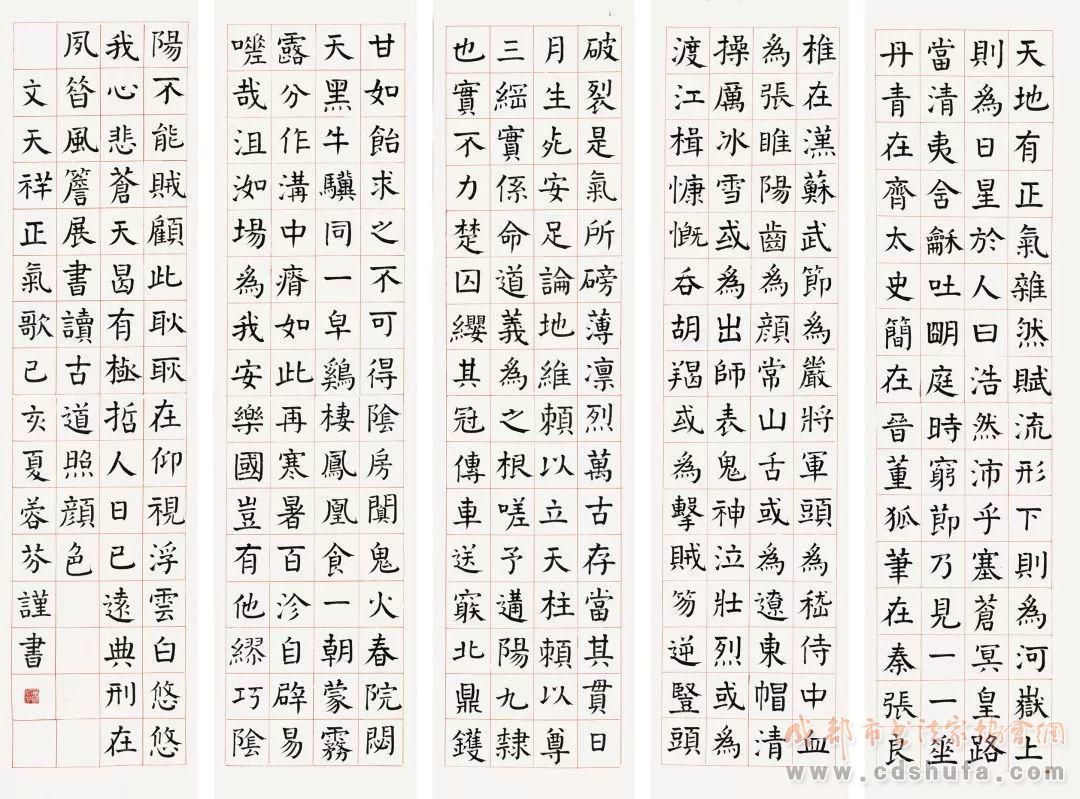 天地有正氣雜然賦流形下則為河嶽上
則為日星於人曰浩然沛乎塞蒼冥皇路
當清夷舍龢吐朙庭時窮節乃見一一垂
丹青在齊太史簡在晉董狐筆在秦張良
椎在漢蘇武節為嚴將軍頭為嵇侍中血
為張睢陽齒為顏常山舌或為遼東帽清
操厲冰雪或為出師表鬼神泣壯烈或為
渡江楫慷慨吞胡羯或為擊賊笏逆豎頭
破裂是氣所磅薄凛烈萬古存當其貫日
月生死安足論地維賴以立天柱賴以尊
三綱實係命道義為之根嗟予遘陽九隸
也實不力楚囚纓其冠傳車送窮北鼎鑊
甘如飴求之不可得陰房闃鬼火春院閟
天黑牛驥同一皁鷄棲鳳凰食一朝蒙霧
露分作溝中瘠如此再寒暑百沴自辟易
嗟哉沮洳場為我安樂國豈有他繆巧陰
陽不能賊顧此耿耿在仰視浮雲白悠悠
我心悲蒼天曷有極哲人日已遠典刑在
夙昔風簷展書讀古道照顏色
文天祥正氣歌己亥夏蓉芬謹書
成都市书法家協會網
www.cdshufa.com